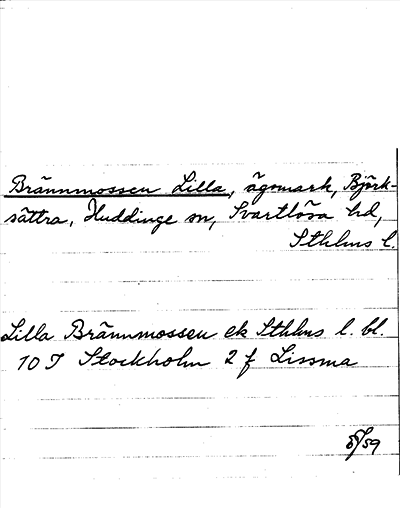 Brännmossen Lilla, ägomark, Björk-
sättra, Huddinge sn, Svartlösa hd,
Sthlms l.
Lilla Brännmossen ek Sthlms l. bl.
10 I Stockholm 2 f Lissma
/59